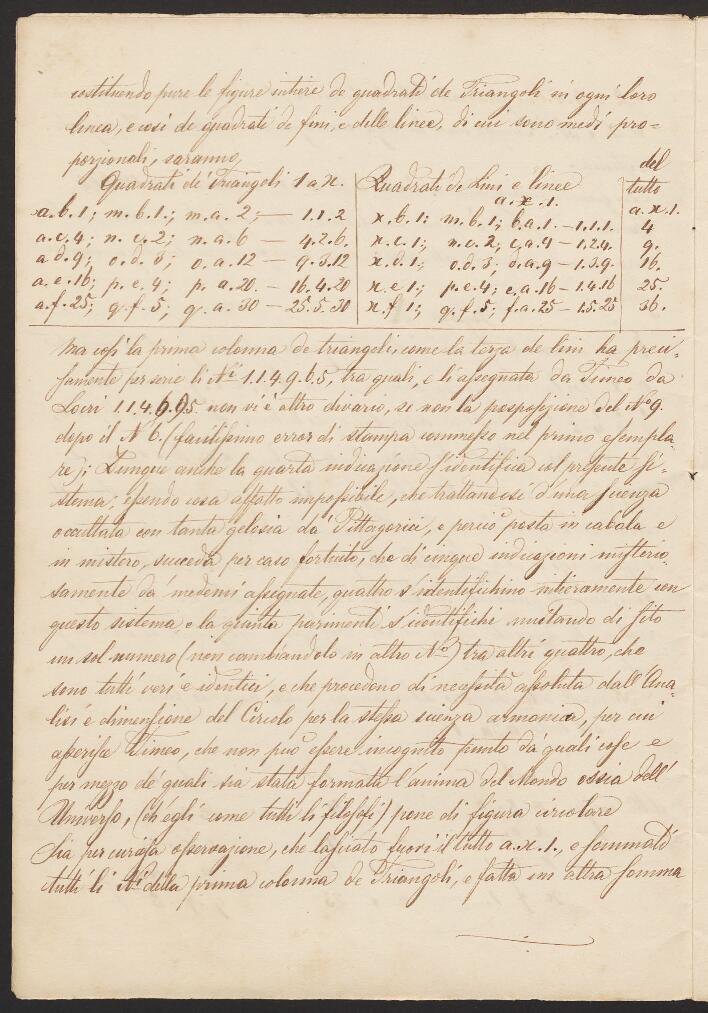 costituendo pure le figure intiere de quadrati de Triangoli in ogni loro
linea, e così de quadrati de fini, e delle linee, di cui sono medi pro=
porzionali, saranno,
Quadrati de Triangoli 1 a.x. Quadrati de Lini e linee a.x.1. del tutto a.x.1.
a.b.1; m.b.1.; m.a.2; — 1.1.2 x.b.1; m.b.1; b.a.1. — 1.1.1. 4
a.c.4; n.c.2; n.a.6 — 4.2.6. x.c.1; n.c.2; c.a.4 — 1.2.4. 9.
a.d.9; o.d.3; o.a.12 — 9.3.12 x.d.1; o.d.3; d.a.9 — 1.3.9. 16.
a.e.16; p.e.4; p.a.20. — 16.4.20 x.e.1; p.e.4; e.a.16 — 1.4.16 25.
a.f.25; q.f.5; q.a.30 — 25.5.30 x.f.1; q.f.5; f.a.25 — 1.5.25 36.
Ma così la prima colonna de triangoli, come la terza de lini ha preci=
samente per serie li Nri 1.1.4.9.6.5, tra quali, e li assegnata da Timeo da
Locri 1.1.4.6.9.5. non vi è altro divario, se non la posposizione del No 9.
dopo il N 6. (facilissimo error di stampa commesso nel primo esempla=
re); Dunque anche la quarta indicazione s'identifica col presente si=
stema; essendo cosa affatto impossibile, che trattandosi d'una scienza
occultata con tanta gelosia da' Pittagorici, e perciò posta in cabala e
in mistero, succeda per caso fortuito, che di cinque indicazioni misterio=
samente da' medemi assegnate, quattro s'identifichino intieramente con
questo sistema, e la quinta parimenti s'identifichi mutando di sito
un sol numero (non cambiandolo in altro No) tra altri quattro, che
sono tutti veri e identici, e che procedono di necessità assoluta dall'Ana=
lisi e dimensione del Circolo per la stessa scienza armonica, per cui
asserisce Timeo, che non può essere incognito punto da quali cose e
per mezzo de' quali sia stata formatta l'anima del Mondo ossia dell'
Universo, (ch'egli come tutti li filosofi) pone di figura circolare
Sia per curiosa osservazione, che lasciato fuori il tutto a.x.1., e sommati
tutti li Nri della prima colonna de Triangoli, e fatta un altra somma